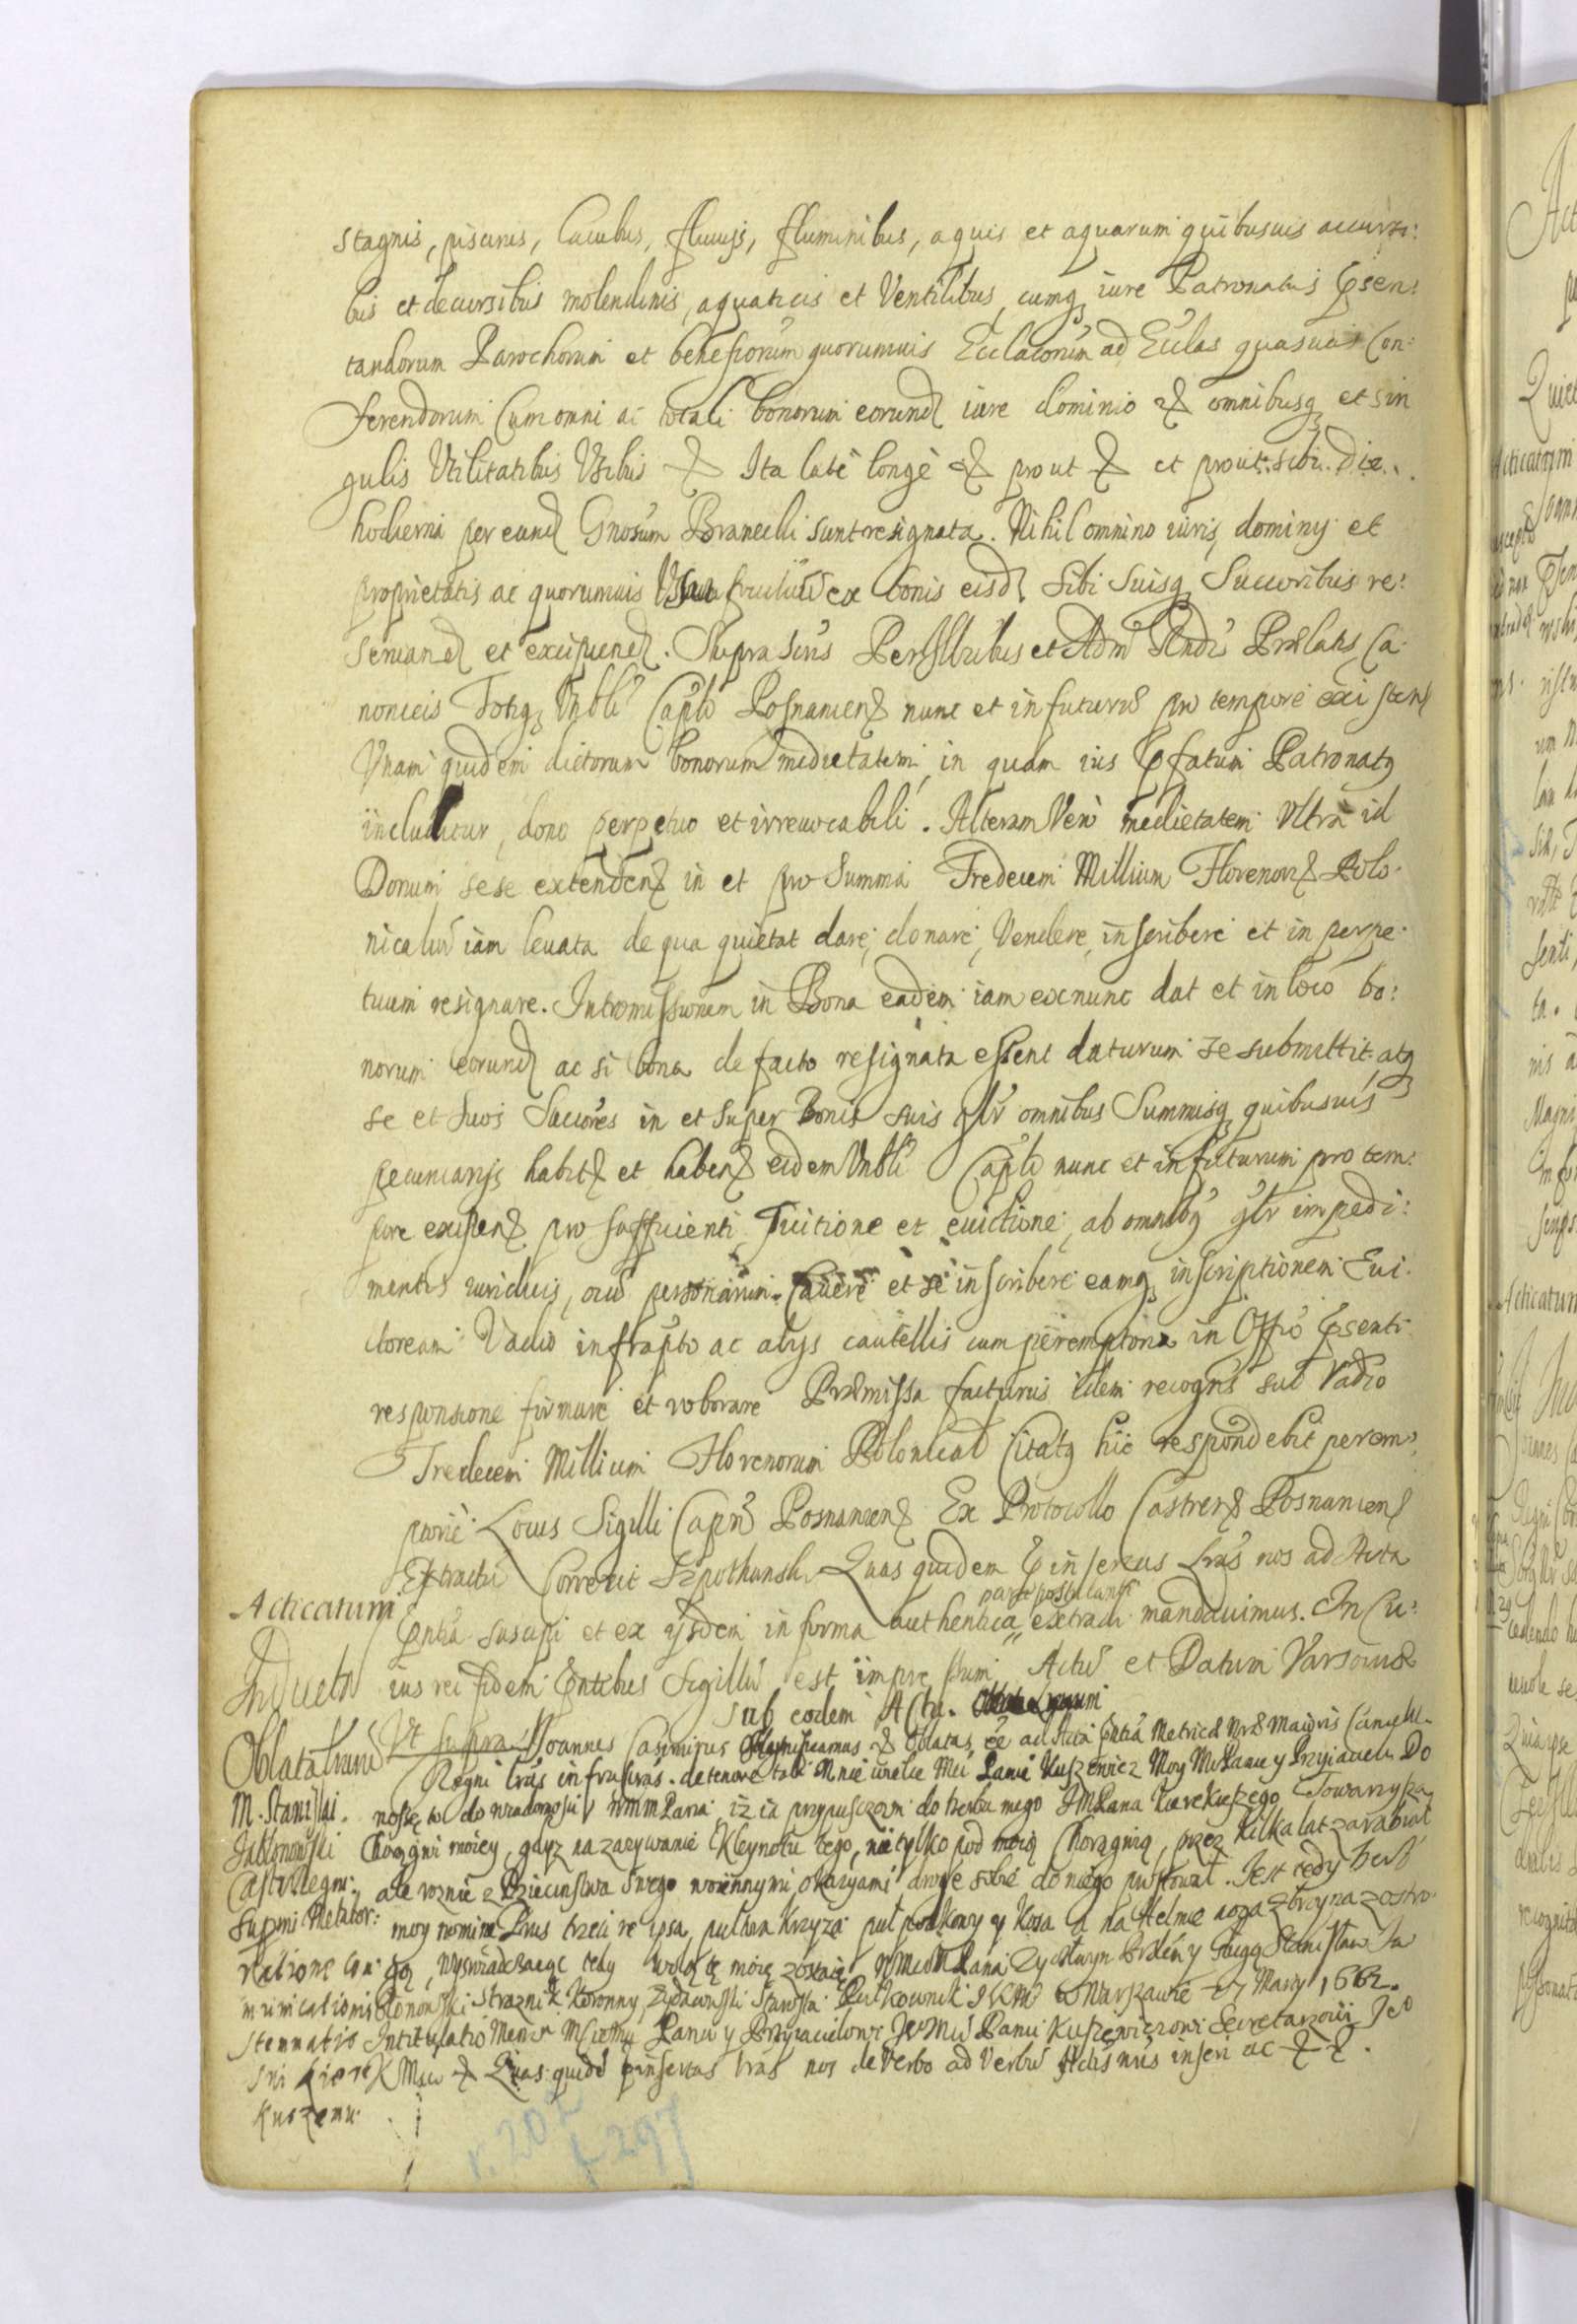 stagnis, piscinis, lacubus, fluuijs, fluminibus, aquis et aquarum quibusuis accursi:
bus et decursibus molendinis, aquaticis et Ventilibus, cumq iure Patronatus psen:
tandorum Parochorum et beneficiorum quorumuis Ecclarum ad Ecclas quasuis Con:
ferendorum Cum omni ac totali bonorum eorund iure dominio & omnibusq et sin
gulis Vtilitatibus Vsibus & Ita latè longè & prout & et prout sibi die
hodierna per eund Gnosum Branecki sunt resignata. Nihil omnino iuris, dominy et
proprietatis ac quorumuis ex bonis eisd sibi suisq Succoribus re:
seruand et excipiend. Supra scris PerIllribus et Adm Rndis Prælatis, Ca
nonicis Totiq Vnbli Caplo Posnanien nunc et in futurum pro tempore existen
Vnam quidem dictorum bonorum medietatem, in quam ius pfatum Patronatq
includitur, dono perpetuo et irreuocabili. Alteram Verò medietatem Vltra id
Donum sese extenden in et pro Summa Tredecem Millium Florenor Polo
nicaliũ iam leuata de qua quietat dare, donare, Vendere, inscribere et in perpe
tuum resignare. Intromissionem in Bona eadem iam exnunc dat et in loco bo:
norum eorund ac si bona de facto resignata essent daturum se submittit atq
se et suos Succores in et super Bonis suis glr omnibus Summisq quibusuis
pecuniarijs habit et haben eidem Vnbli Caplo nunc et in futurum pro tem:
pore existen pro sufficienti Tuitione et euictione, ab omnibq glr impedi:
mentis iuridicis, oium personarum Cauere et se inscribere eamq inscriptionem Eui
ctoream Vadio infrapto ac alijs cautellis cum peremptoria in Offo psenti
responsione firmare et roborare Præmissa facturus idem recogns sub Vadio
Tredecem Millium Florenorum Polonical Citatq hic respondebit perem
ptorie Locus Sigilli Capn Posnanien Ex Protocollo Castren Posnanien
Extractũ Correxit Szpothansk. Quas quidem pinsertas Lras nos ad Acta
Acticatum pntia suscipi et ex ysdem in forma authentica parte postulante extradi mandauimus. In Cu:
Inducta ius rei fidem pntibus Sigillũ est impressum Actũ et Datum Varsouiæ
sub eodem Actu.
Oblata lrarũ Vt supra Joannes Casimirus Significamus & Oblatas, ee ad Acta pntia Metricæ Nræ Maioris Cancell.
Regni lras infrascras. de tenore tali Mnie wielce Mci Panie Kuszewicz Moy Mci Panie y Przyiacielu Do
M. Stanislai noszę to do wiadomosci WmmPana iz ia przypusczam do herbu mego JMPana Kierekieszego Towarzysza
Jablonowski Chorągwi moiey, gdyz na zazywanie Kleynotu tego, nie tylko pod moią Chorągwią, przez kilka lat zarabiał
Castr Regni ale roznie z Dziecinstwa Swego woiennymi okazyami drogę sobie do niego prostował. Jest tedy herb
Supmi Metator: moy nomine Prus trzeci re ipsa, pułtora Krzyza puł podkowy y kosa a na Helmie noga zbroyna z ostro
ratione Com gą, Wyswiadczaiąc tedy wolą tę moię zostaię WMciMPana Zyczliwym Bratem y sługą Stanisław Ja
municationis błonowski Straznik Koronny, Starosta Pułkownik JKM w Warszawie 27 Marty 1662.
Stemmatis Intitulatio Memu Mscięmu Panu y Przyiacielowi JeMci Panu Kuszewiczowi Secretarzowi Je
Sui Kiere KMsci & Quas quidẽ pinsertas lras nos de Verbo ad Verbũ Actis nris inseri ac & &.
Kuszemu
r. 202
f 297